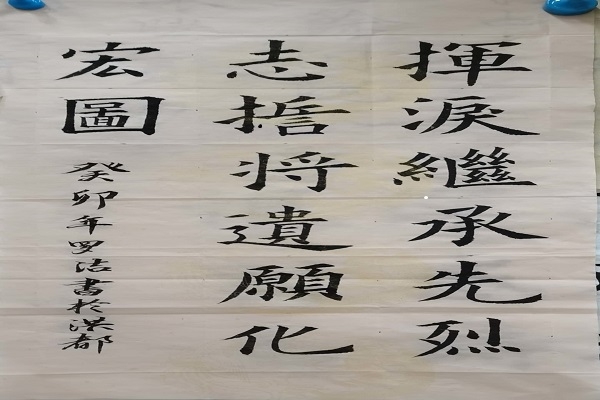 揮淚繼承先烈
志擔將遺願化
宏圖
癸卯年罗洁書於洪都